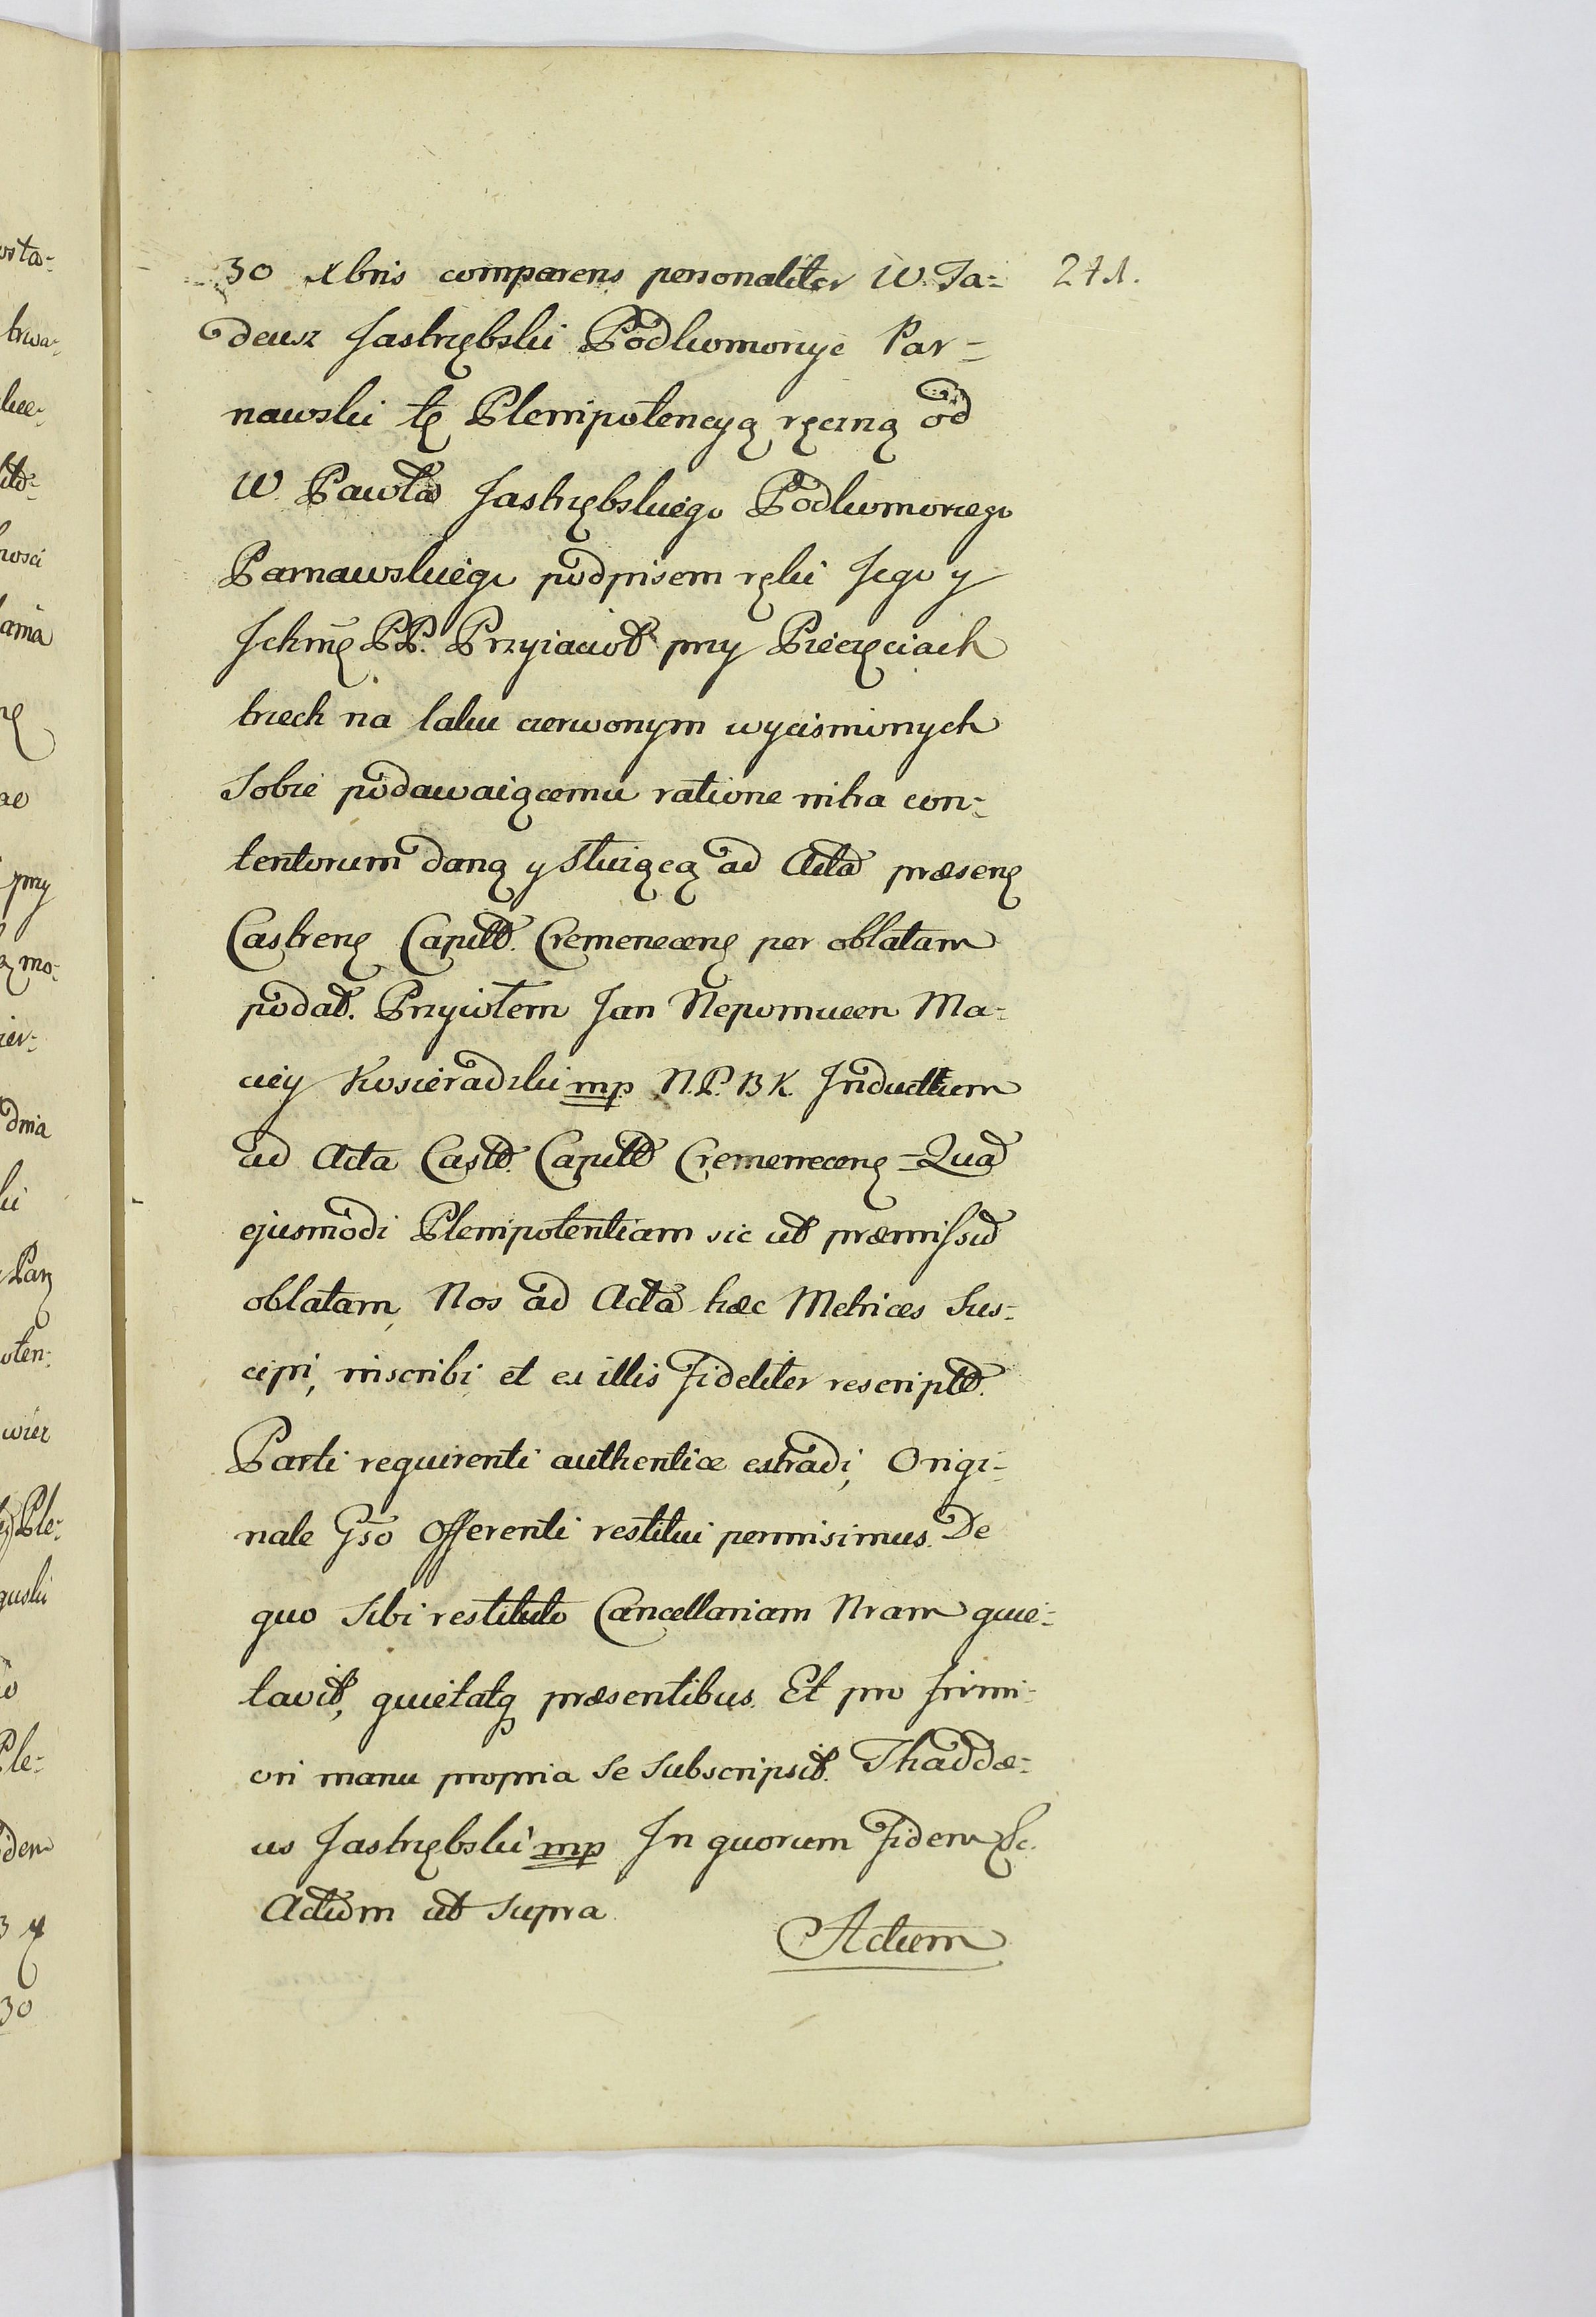 30 Xbris comparens personaliter W. Ta=
271.
deusz Jastrzębski Podkomorzyc Par=
nawski tę Plenipotencyą ręczną od
W. Pawła Jastrzębskiego Podkomorzego
Parnawskiego podpisem ręki Jego y
Ichmę PP. Przyiaciół przy Pieczęciach
trzech na laku czerwonym wycisnionych
Sobie podawaiącemu ratione intra con=
tentorum daną y słuzącą ad Acta præsenę
Castrenę Capitt. Cremenecenę per oblatam
podał. Przyiołem Jan Nepomucen Ma=
ciey Kosieradzki mp N.P.B K. Inductum
ad Acta Castr. Capitt Cremenecenę = Quā
ejusmodi Plenipotentiam sic ut præmissū
oblatam, Nos ad Acta hæc Metrices Sus=
cipi, inscribi et ex illis fideliter rescriptū.
Parti requirenti authentice extradi, Origi=
nale Gso Offerenti restitui permisimus. De
quo Sibi restituto Cancellariam Nram quie=
tavit, quietatq præsentibus. Et pro firmi=
ori manu propria Se Subscripsit. Thaddæ=
us Jastrzębski mp In quorum fidem &c.
Actum ut Supra
Actum
wsta=
trwa=
przy
mo=
dnia
Ple=
Ple=
fidem
30